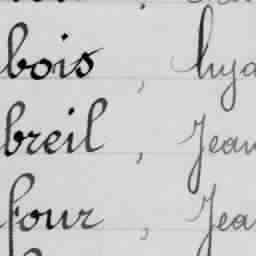 bois , hya
breil , Jean
four , Jea